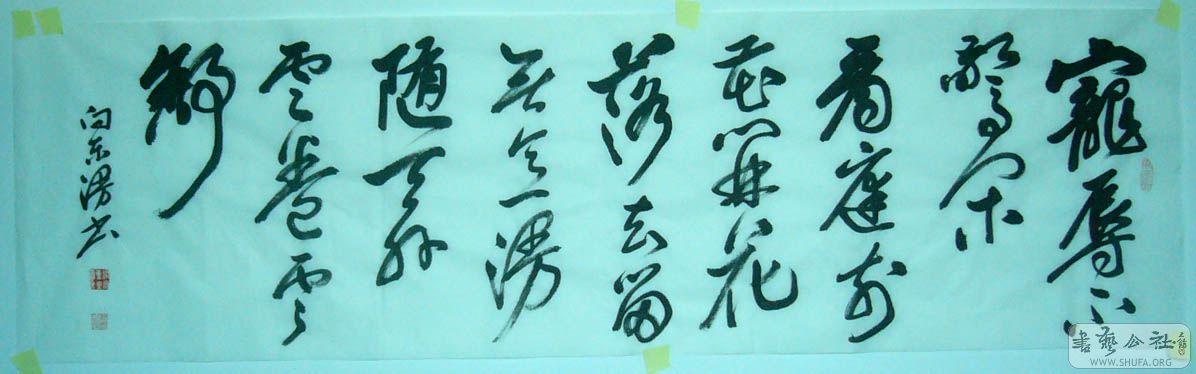 寵辱不
驚閑
看庭前
花開花
落去留
無意漫
随天外
雲卷雲
舒
向东漫书
書藝公社
WWW.SHUFA.ORG